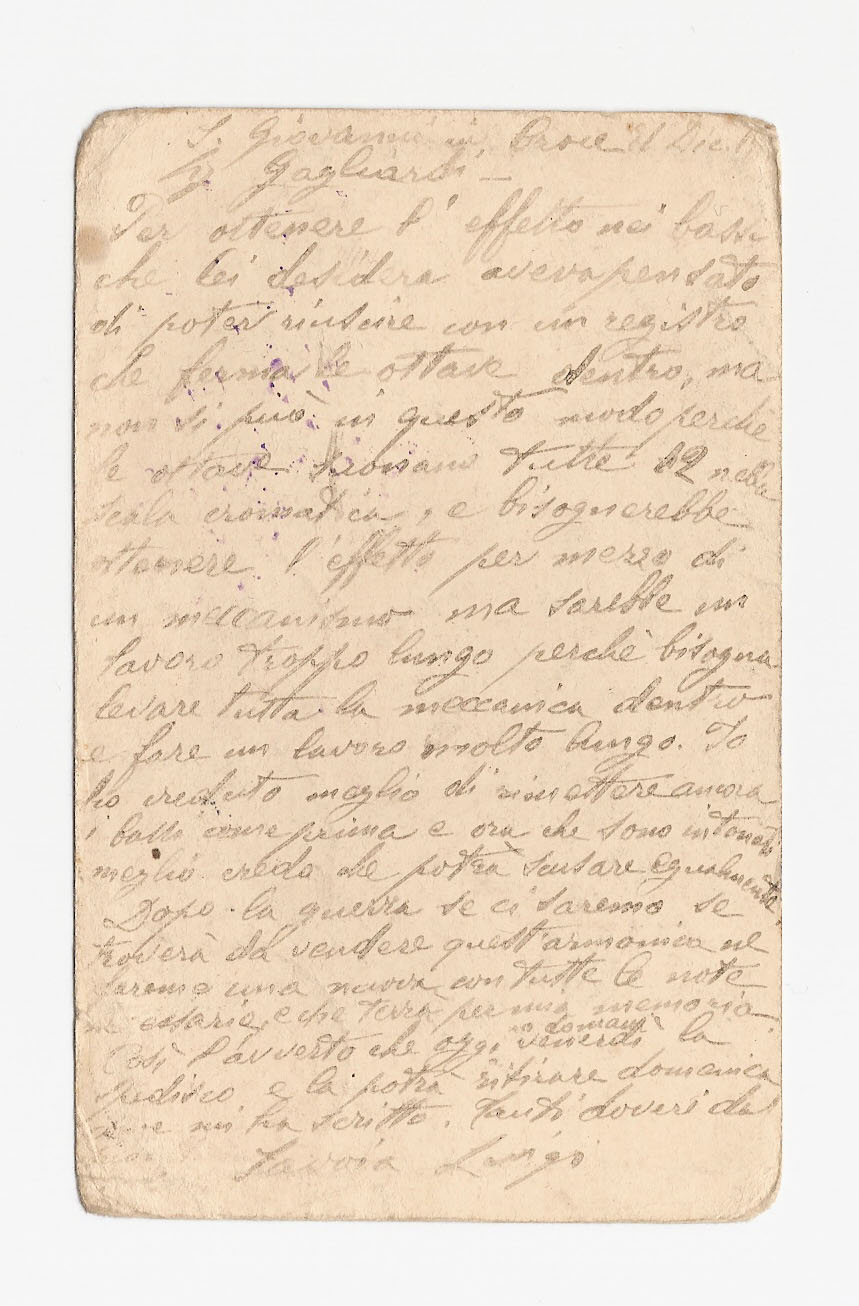 S. Giovanni in Croce 21 Dic.
Sg Gagliardi —
Per ottenere l' effetto nei bassi
che lei desidera avevo pensato
di poter riuscire con un registro
che ferma le ottave dentro, ma
non si può in questo modo perchè
le ottave suonano tutte 12 nella
scala cromatica, e bisognerebbe
ottenere l'effetto per mezzo di
un meccanismo ma sarebbe un
lavoro troppo lungo perchè bisogna
levare tutta la meccanica dentro
e fare un lavoro molto lungo. Io
ho creduto meglio di rimettere ancora
i bassi come prima e ora che sono intonati
meglio credo che potrà scusare egualmente.
Dopo la guerra se ci saremo se
troverà da vendere quest'armonica ne
faremo una nuova con tutte le note
necessarie, e che terrà per mia memoria
Così l'avverto che oggi venerdì o domani la
spedisco e la potrà ritirare domenica
come mi ha scritto. Tanti doveri da
Savoia Luigi